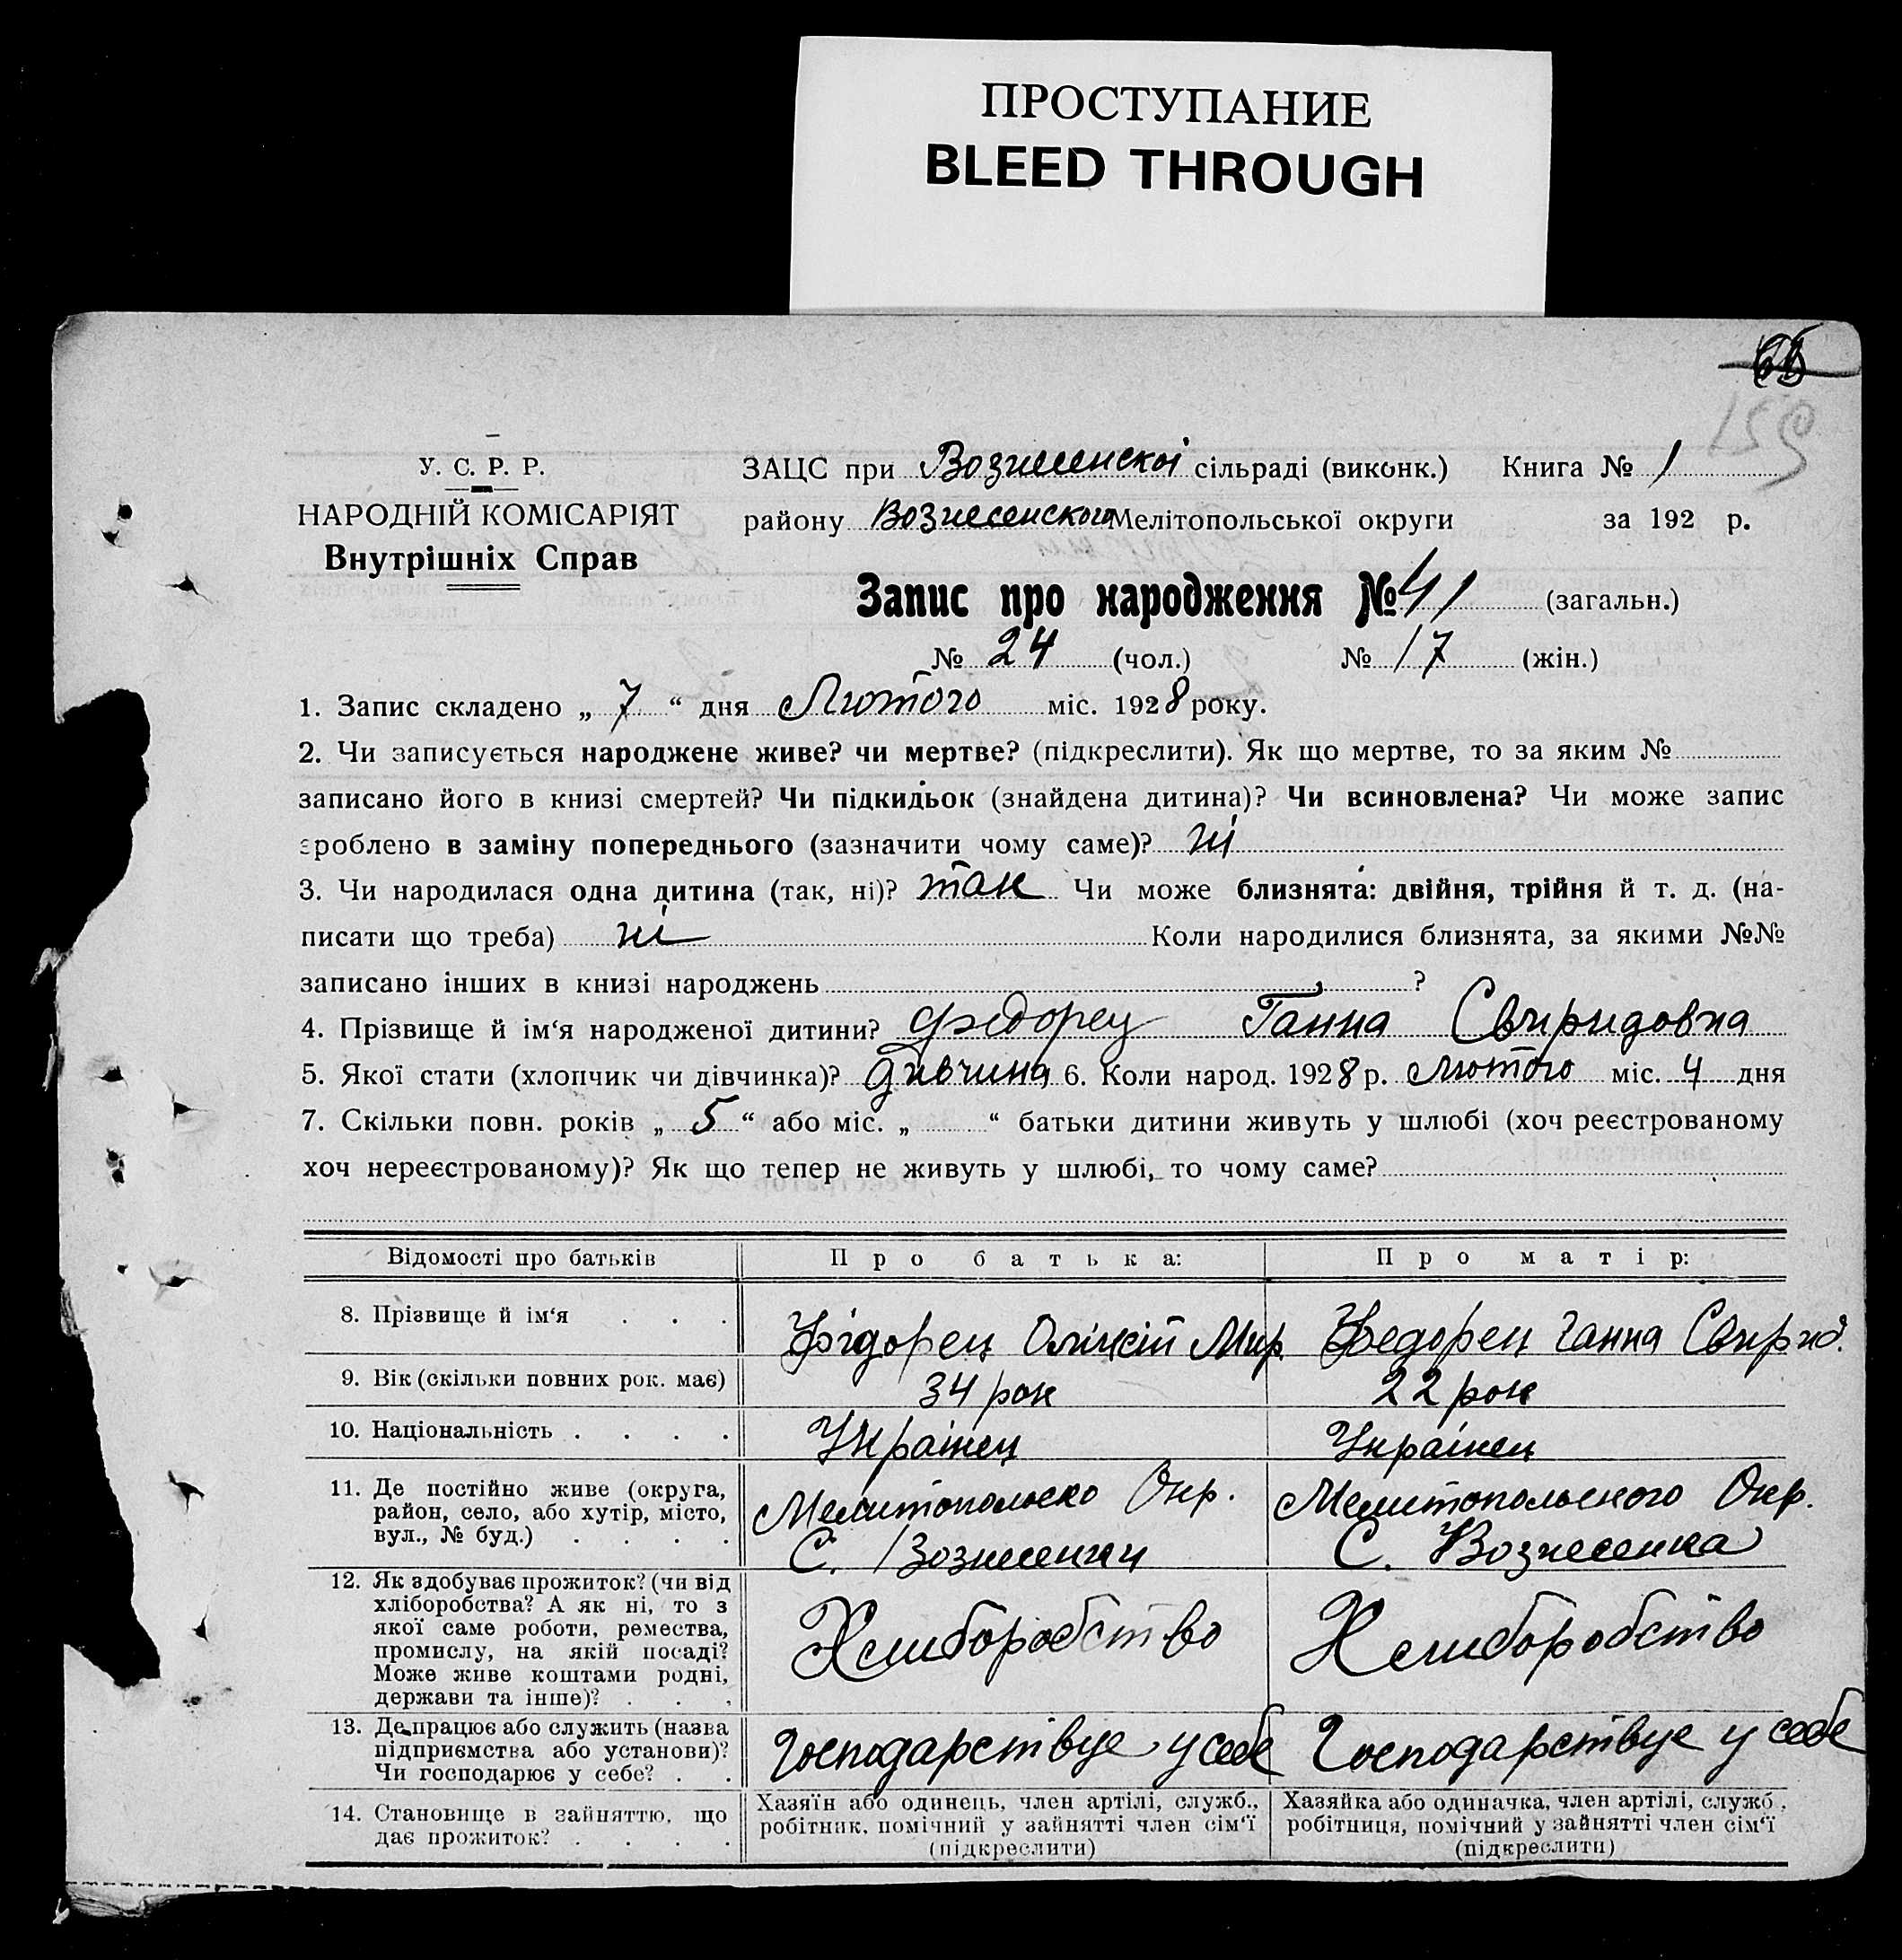 ПРОСТУПАНИЕ
BLEED THROUGH
У. С. Р. Р.
НАРОДНІЙ КОМІСАРІЯТ
Внутрішніх Справ
ЗАЦС при Вознесенскої сільраді (виконк.) Книга № 1
району Вознесенского Мелітопольської округи за 192 р.
Запис про народження № 41 (загальн.)
№ 24 (чол.) № 17 (жін.)
1. Запис складено „ 7 “ дня Лютого міс. 1928 року.
2. Чи записується народжене живе? чи мертве? (підкреслити). Як що мертве, то за яким №
записано його в книзі смертей? Чи підкидьок (знайдена дитина)? Чи всиновлена? Чи може запис
зроблено в заміну попереднього (зазначити чому саме)? ні
3. Чи народилася одна дитина (так, ні)? так Чи може близнята: двійня, трійня й т. д. (на-
писати що треба) ні Коли народилися близнята, за якими №№
записано інших в книзі народжень ?
4. Прізвище й ім‘я народженої дитини? Федорец Ганна Свиридовна
5. Якої стати (хлопчик чи дівчинка)? дивчина 6. Коли народ. 1928 р. лютого міс. 4 дня
7. Скільки повн. років „ 5 “ або міс. „ “ батьки дитини живуть у шлюбі (хоч реєстрованому
хоч нереєстрованому)? Як що тепер не живуть у шлюбі, то чому саме?
Відомості про батьків Про батька: Про матір:
8. Прізвище й ім‘я . . . Фідорец Оліксій Мир. Федорец Ганна Свирид.
9. Вік (скільки повних рок. має) 34 рок 22 рок
10. Національність . . . . Украінец Украінец
11. Де постійно живе (округа,
район, село, або хутір, місто,
вул., № буд.) . . . .
Мелитопольско Окр.
С. Вознесенки
Мелитопольского Окр.
С. Вознесенка
12. Як здобуває прожиток? (чи від
хліборобства? А як ні, то з
якої саме роботи, ремества,
промислу, на якій посаді?
Може живе коштами родні,
держави та інше)? . . .
Хлиборобство Хлиборобство
13. Де працює або служить (назва
підприємства або установи)?
Чи господарює у себе? . .
Господарствує у себе Господарствує у себе
14. Становище в зайняттю, що
дає прожиток? . . . .
Хазяїн або одинець, член артілі, служб.,
робітник, помічний у зайнятті член сім‘ї
(підкреслити)
Хазяйка або одиначка, член артілі, служб.,
робітниця, помічний у зайнятті член сім‘ї
(підкреслити)